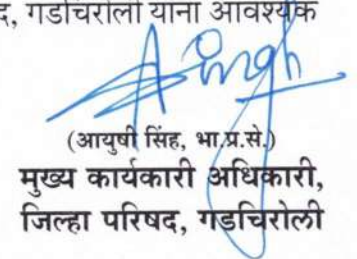 द, गडचिरोली यांना आवश्यक
Singh
(आयुषी सिंह, भा.प्र.से.)
मुख्य कार्यकारी अधिकारी,
जिल्हा परिषद, गडचिरोली